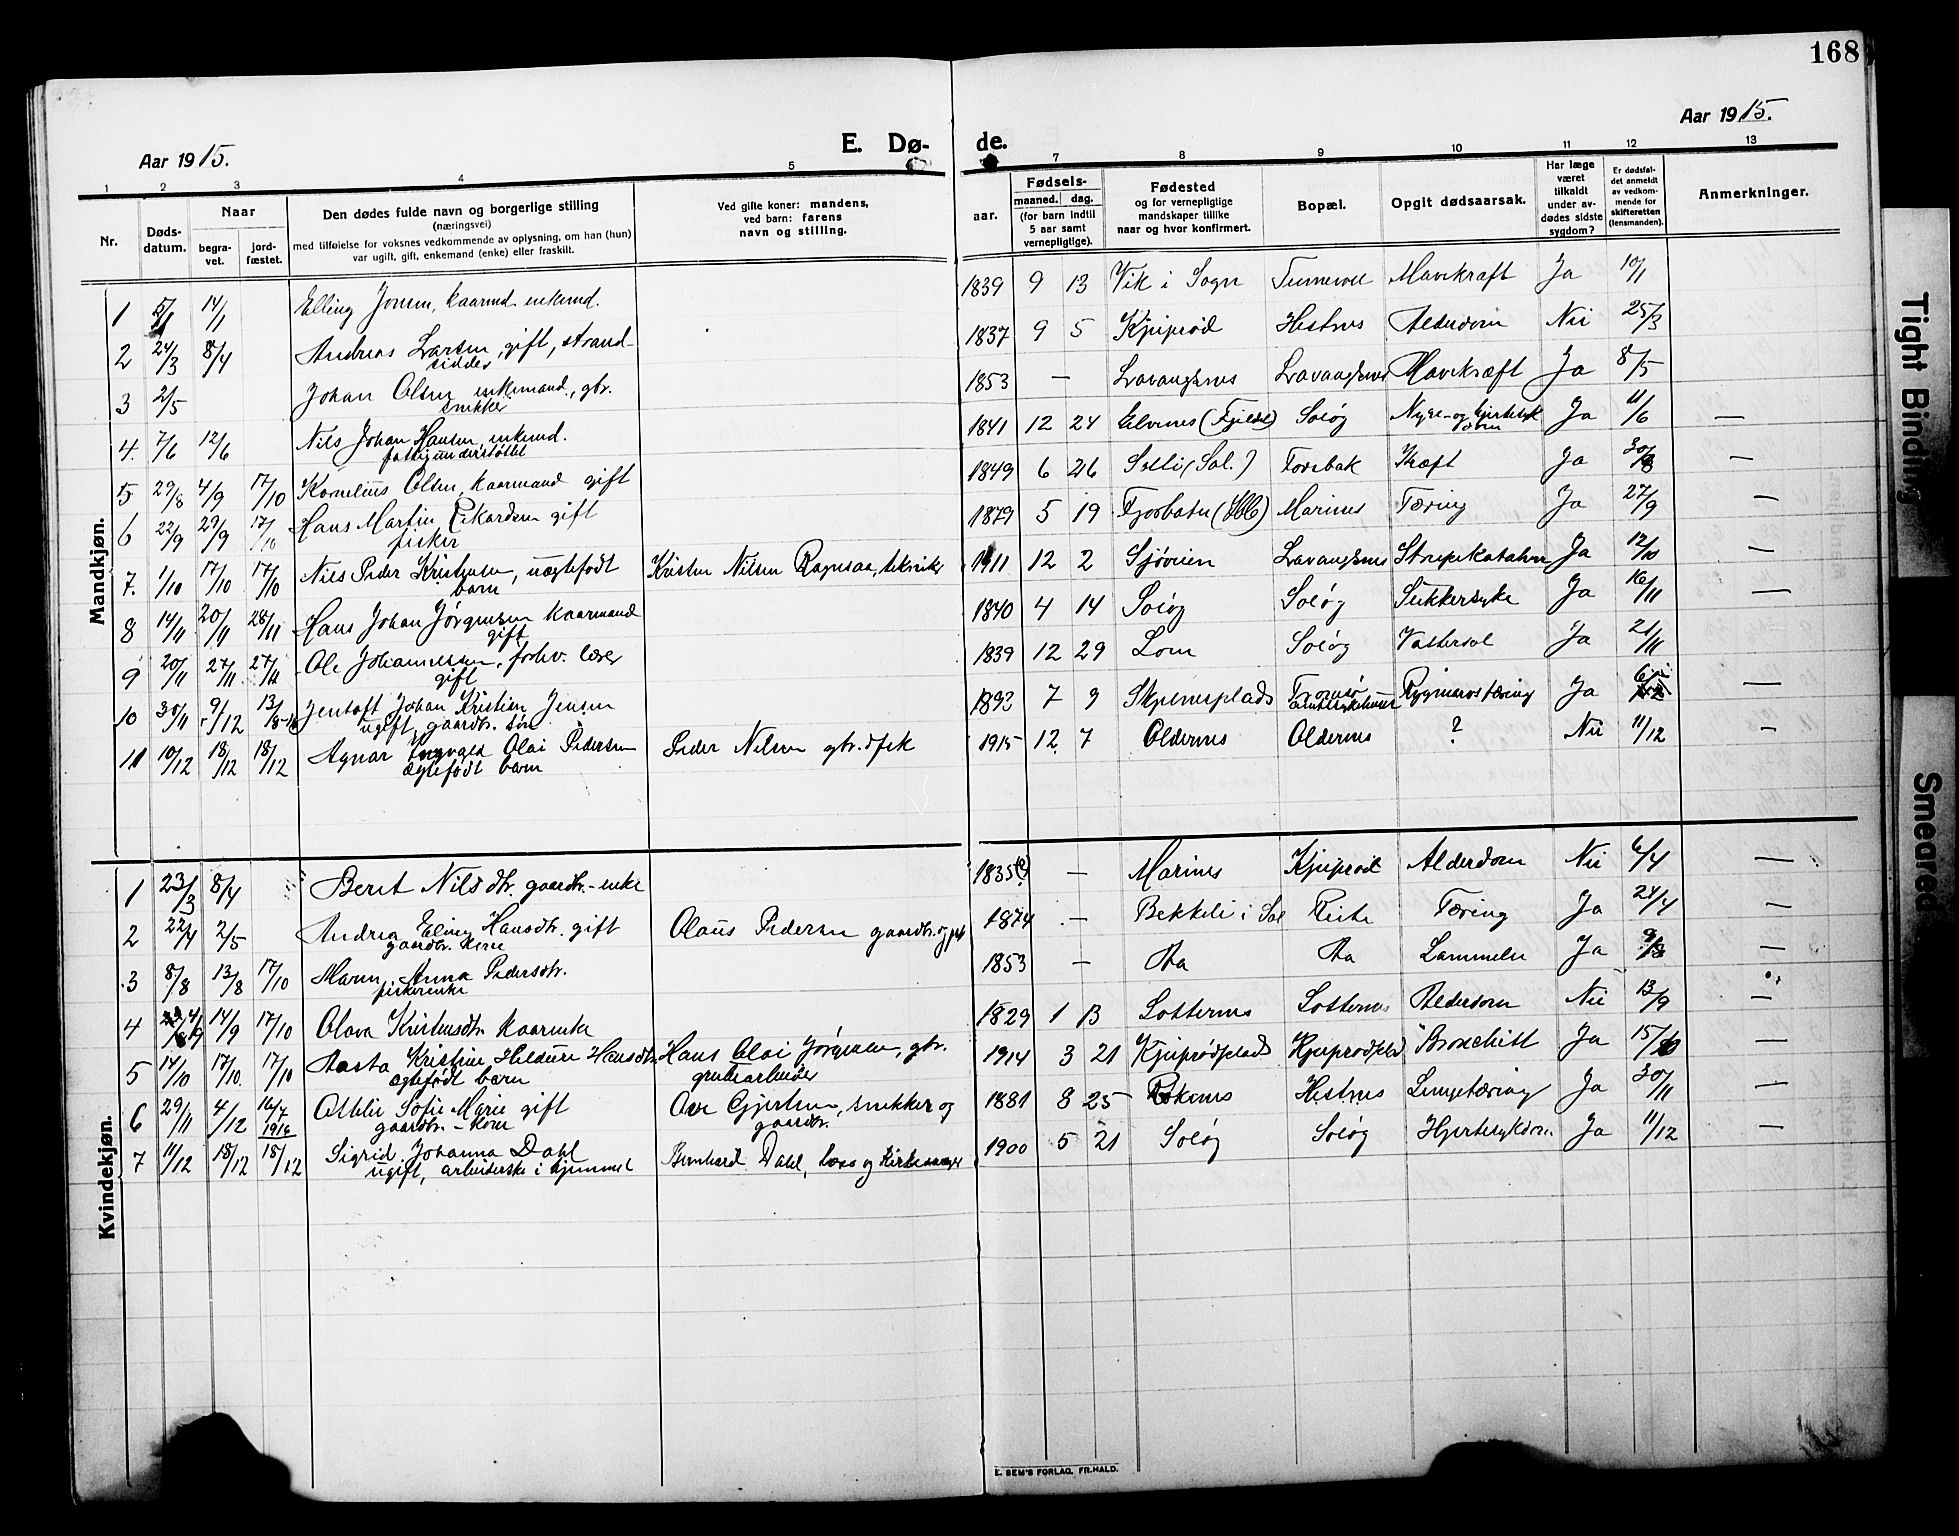 168
Aar 1915.
E. Dø-
de.
Aar 1915.
1 2 3 4 5 7 8 9 10 11 12 13
Nr.
Døds-
datum.
Naar
begra-
vet.
jord-
fæstet.
Den dødes fulde navn og borgerlige stilling
(næringsvei)
med tilføielse for voksnes vedkommende av oplysning, om han (hun)
var ugift, gift, enkemand (enke) eller fraskilt.
Ved gifte koner: mandens,
ved barn: farens
navn og stilling.
Fødsels-
aar.
maaned. dag.
(for barn indtil
5 aar samt
vernepligtige).
Fødested
og for vernepligtige
mandskaper tillike
naar og hvor konfirmert.
Bopæl.
Opgit dødsaarsak.
Har læge
været
tilkaldt
under av-
dødes sidste
sygdom?
Er dødsfal-
det anmeldt
av vedkom-
mende for
skifteretten
(lensmanden).
Anmerkninger.
Mandkjøn.
1 5/1 14/1 Elling Jonsen, kaarmd. enkemd. 1839 9 13 Vik i Sogn Mavekraft Ja 10/1
2 24/3 8/4 Andreas Larsen, gift, strand-
sidder 1837 9 5 Hestnes Alderdom Nei 25/3
3 2/5 Johan Olsen enkemand, gbr.
snekker 1853 — Lavangsnes Lavangsnes Mavekræft Ja 8/5
4. 7/6 12/6 Nils Johan Hansen, enkemd.
fattigunderstøttet 1841 12 24 Elvenes Soløy Ja 11/6 —
5 29/8 4/9 17/10 Kornelius Olsen, kaarmand gift 1849 6 26 Selli (Sal.) Forsbak Kræft Ja —
6 22/9 29/9 17/10 Hans Martin Rikardsen gift
fisker 1879 5 19 Marines Tæring Ja 27/9 —
7. 1/10 17/10 17/10 Nils Peder Kristensen, uægtefødt
barn Kristen Nilsen Ragnesaa, tekniker 1911 12 2 Sjøveien Lavangsnes Ja 12/10 —
8 14/11 20/11 28/11 Hans Johan Jørgensen kaarmand
gift 1840 4 14 Soløy Soløy Sukkersyke Ja 16/11 —
9 20/11 27/11 27/11 Ole Johannessen, forhv. lærer
gift 1839 12 29 Lom Soløy Ja 21/11
10 30/11 9/12 Jentoft Johan Kristian Jensen
ugift, gaardbr. søn 7 9 Tromsø
Rygmarvstæring Ja —
11 10/12 18/12 18/12 Agnar Olai Pedersen
ægtefødt barn Peder Nilsen gbr. 1915 12 7 Oldernes Oldernes ? Nei 11/12 —
Kvindekjøn.
1 23/3 8/4 Berit Nilsdtr. gaardbr.-enke 1835(?) — Marines Alderdom Nei 6/4 —
2 22/4 2/5 Andrea Hansdtr. gift
gaardbr. kone Olaus Pedersen gaardbr. og 1874 — Bekkeli i Sal Tæring Ja 24/4 —
3 8/8 13/8 17/10 Maren Anna Pedersdtr.
fiskerenke 1853 — Aa Aa Lammelse Ja —
4 14/9 17/10 Olava Kristensdtr. kaarenke 1829 1 13 Lotternes Lotternes Alderdom Nei 13/9 —
5 14/10 17/10. 17/10 Aasta Kristine Hansdtr.
ægtefødt barn Hans Olai Jørgensen, gbr.
grubearbeider 1914 3 21 Bronchitt Ja —
6 29/11 4/12 16/7
1916 Ottilie Sofie Marie gift
gaardbr.-kone Ove Gjertsen, snekker og
gaardbr. 1881 8 25 Hestnes Lungetæring Ja 30/11 —
7 11/12 18/12 18/12 Sigrid Johanna Dahl
ugift, arbeiderske i hjemmet Bernhard Dahl, lærer og kirkesanger 1900 5 21 Soløy Soløy Hjertesykdom Ja 11/12 —
E. SEM'S FORLAG, FR.HALD.
Tight Binding
Smeared